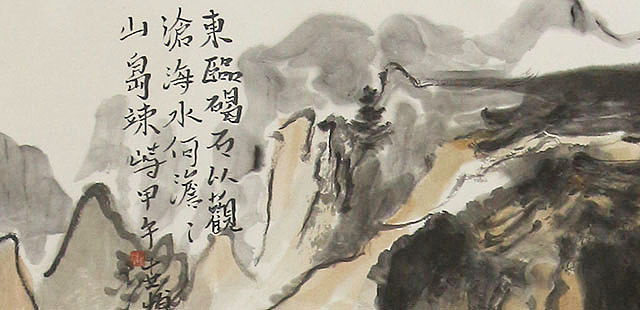 東臨碣石以觀
滄海水何澹〻
山島竦峙甲午